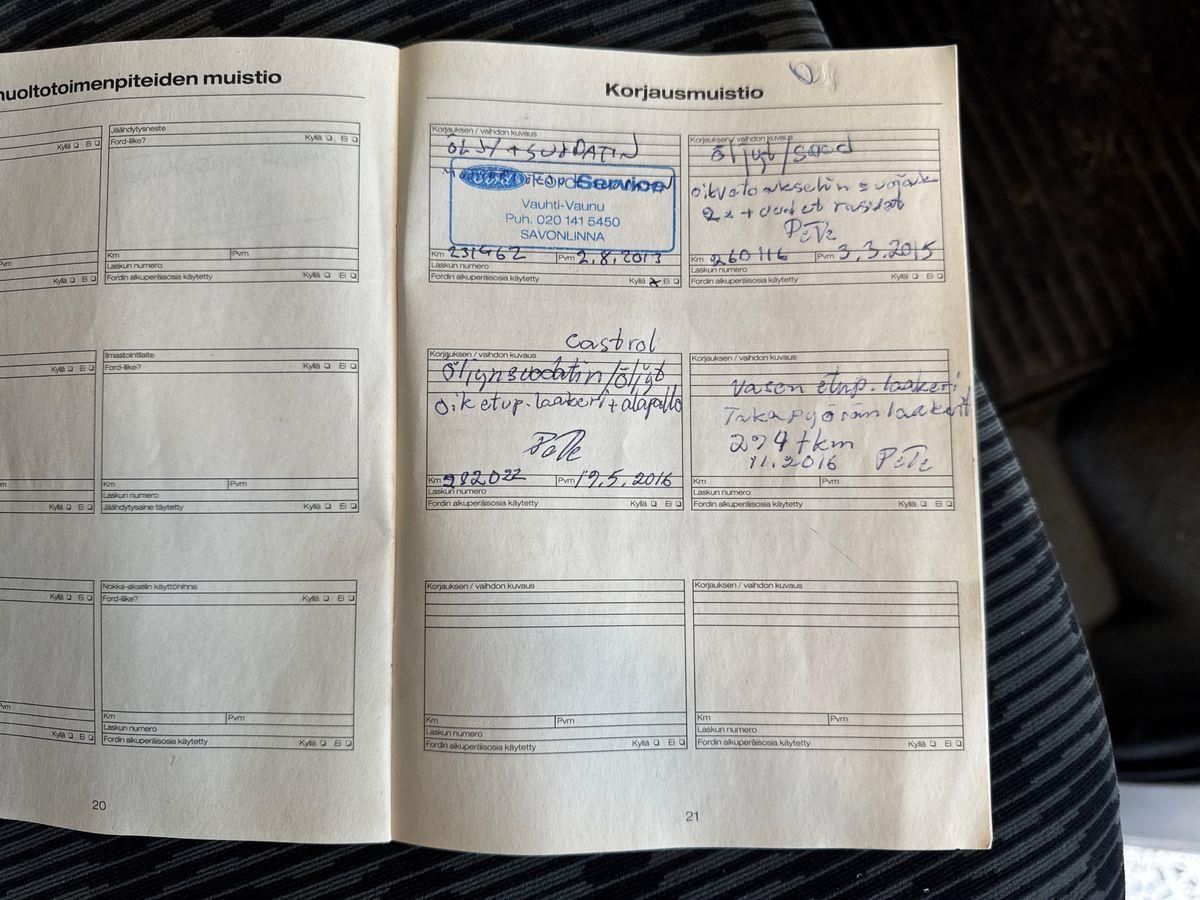 huoltotoimenpiteiden muistio
Kyllä ❏ Ei ❏
Jäähdytysneste
Ford-liike? Kyllä ❏ Ei ❏
Pvm
Km Pvm
Laskun numero
Kyllä ❏ Ei ❏
Fordin alkuperäisosia käytetty Kyllä ❏ Ei ❏
Kyllä ❏ Ei ❏
Ilmastointilaite
Ford-liike? Kyllä ❏ Ei ❏
Km Pvm
Laskun numero
Kyllä ❏ Ei ❏
Jäähdytysaine täytetty Kyllä ❏ Ei ❏
Kyllä ❏ Ei ❏
Nokka-akselin käyttöhihna
Ford-liike? Kyllä ❏ Ei ❏
Pvm
Km Pvm
Laskun numero
Kyllä ❏ Ei ❏
Fordin alkuperäisosia käytetty Kyllä ❏ Ei ❏
20
Korjausmuistio
Korjauksen / vaihdon kuvaus
ÖLJY + SUODATIN
Ford Service
Vauhti-Vaunu
Puh. 020 141 5450
SAVONLINNA
Km 231462 Pvm 2.8.2013
Laskun numero
Fordin alkuperäisosia käytetty Kyllä x Ei ❏
Korjauksen / vaihdon kuvaus
Öljyt/suod
oik vetoakselin
2x + uudet rasvat
PeTe
Km 260116 Pvm 3.3.2015
Laskun numero
Fordin alkuperäisosia käytetty Kyllä ❏ Ei ❏
Castrol
Korjauksen / vaihdon kuvaus
Öljynsuodatin/öljyt
Oik etup. laakeri + alapallo
PeTe
Km 282022 Pvm 19.5.2016
Laskun numero
Fordin alkuperäisosia käytetty Kyllä ❏ Ei ❏
Korjauksen / vaihdon kuvaus
Vasen etup. laakeri
Takapyörän laakerit
294 tkm
11.2016 PeTe
Km Pvm
Laskun numero
Fordin alkuperäisosia käytetty Kyllä ❏ Ei ❏
Korjauksen / vaihdon kuvaus
Km Pvm
Laskun numero
Fordin alkuperäisosia käytetty Kyllä ❏ Ei ❏
Korjauksen / vaihdon kuvaus
Km Pvm
Laskun numero
Fordin alkuperäisosia käytetty Kyllä ❏ Ei ❏
21